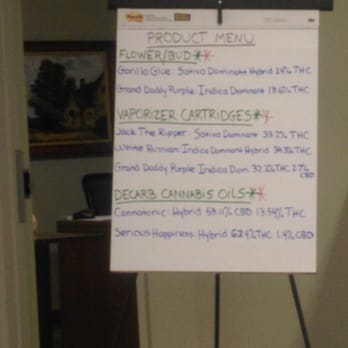 PRODUCT MENU
FLOWER/BUD**
Gorilla Glue: Sativa Dominant Hybrid 24% THC
Grand Daddy Purple Indica Dominant THC
VAPORIZER CARTRIDGES**
Jack The Ripper: Sativa Dominant 33.2% THC
White Russian: Indica Dominant Hybrid 34.3% THC
Grand Daddy Purple Indica Dom. 32.2% THC 2.7% CBD
DECARB CANNABIS OILS**
Cannatonic: Hybrid 59.11% CBD 13.54% THC
Serious Happiness: Hybrid 62.4% THC 1.4% CBD